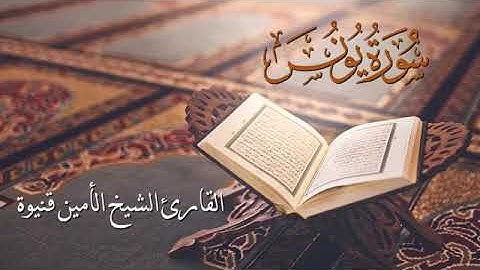 سُورَةُ يُونُسَ
القارئ الشيخ الأمين قنيوة